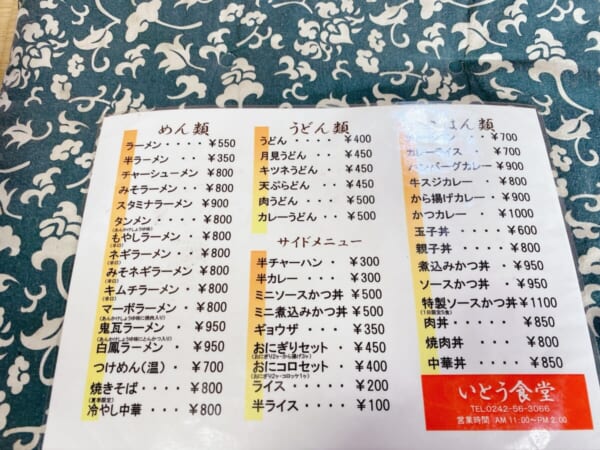 めん類
ラーメン・・・・¥550
半ラーメン・・・¥350
チャーシューメン・¥800
みそラーメン・・・¥800
スタミナラーメン・¥900
タンメン・・・・・¥800
(あんかけしょうゆ味)
もやしラーメン・・¥800
(辛口)
ネギラーメン・・・¥800
(辛口)
みそネギラーメン・¥800
(辛口)
キムチラーメン・・¥800
マーボラーメン・・¥800
(あんかけしょうゆ味に焼肉入り)
鬼瓦ラーメン・・¥950
(あんかけしょうゆ味にとんかつ入り)
白鳳ラーメン・・¥950
つけめん(温)・・¥700
焼きそば・・・・¥800
(夏季限定)
冷やし中華・・・¥800
うどん類
うどん・・・・¥400
月見うどん・・¥450
キツネうどん・¥450
天ぷらうどん・¥450
肉うどん・・・¥500
カレーうどん・¥500
サイドメニュー
半チャーハン・¥300
半カレー・・・¥300
ミニソースかつ丼¥500
ミニ煮込みかつ丼¥500
ギョウザ・・・¥350
おにぎりセット・¥450
(おにぎり2ヶ・から揚げ3ヶ)
おにコロセット・¥400
(おにぎり2ヶ・コロッケ1ヶ)
ライス・・・・¥200
半ライス・・・¥100
はん類
・・¥700
カレーライス・・¥700
ハンバーグカレー¥900
牛スジカレー・・¥800
から揚げカレー・¥900
かつカレー・・¥1000
玉子丼・・・・¥600
親子丼・・・・¥800
煮込みかつ丼・¥950
ソースかつ丼・¥950
特製ソースかつ丼¥1100
(1日限定5食)
肉丼・・・・・¥850
焼肉丼・・・・¥800
中華丼・・・・¥850
いとう食堂
TEL.0242-56-3066
営業時間 AM 11:00〜PM 2:00